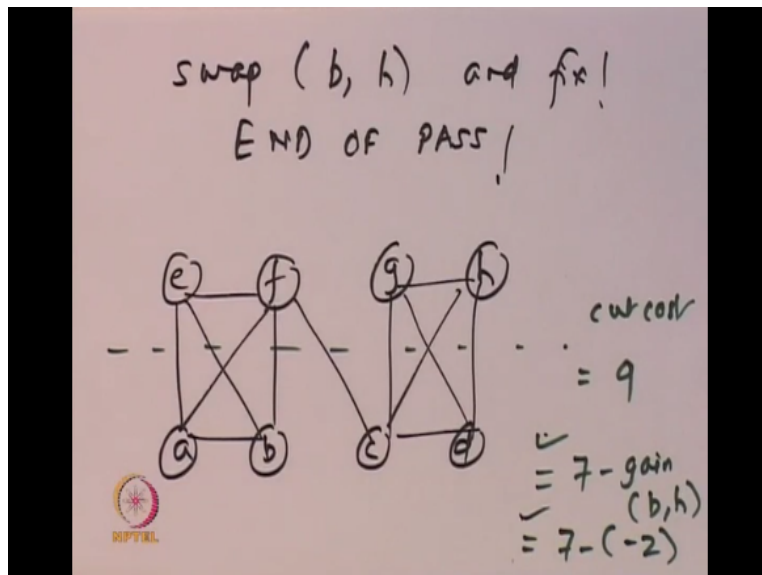 swap (b, h) and fix!
END OF PASS!
e f g h
cut cost
= 9
a b c d
= 7 - gain
(b, h)
= 7 - (-2)
NPTEL